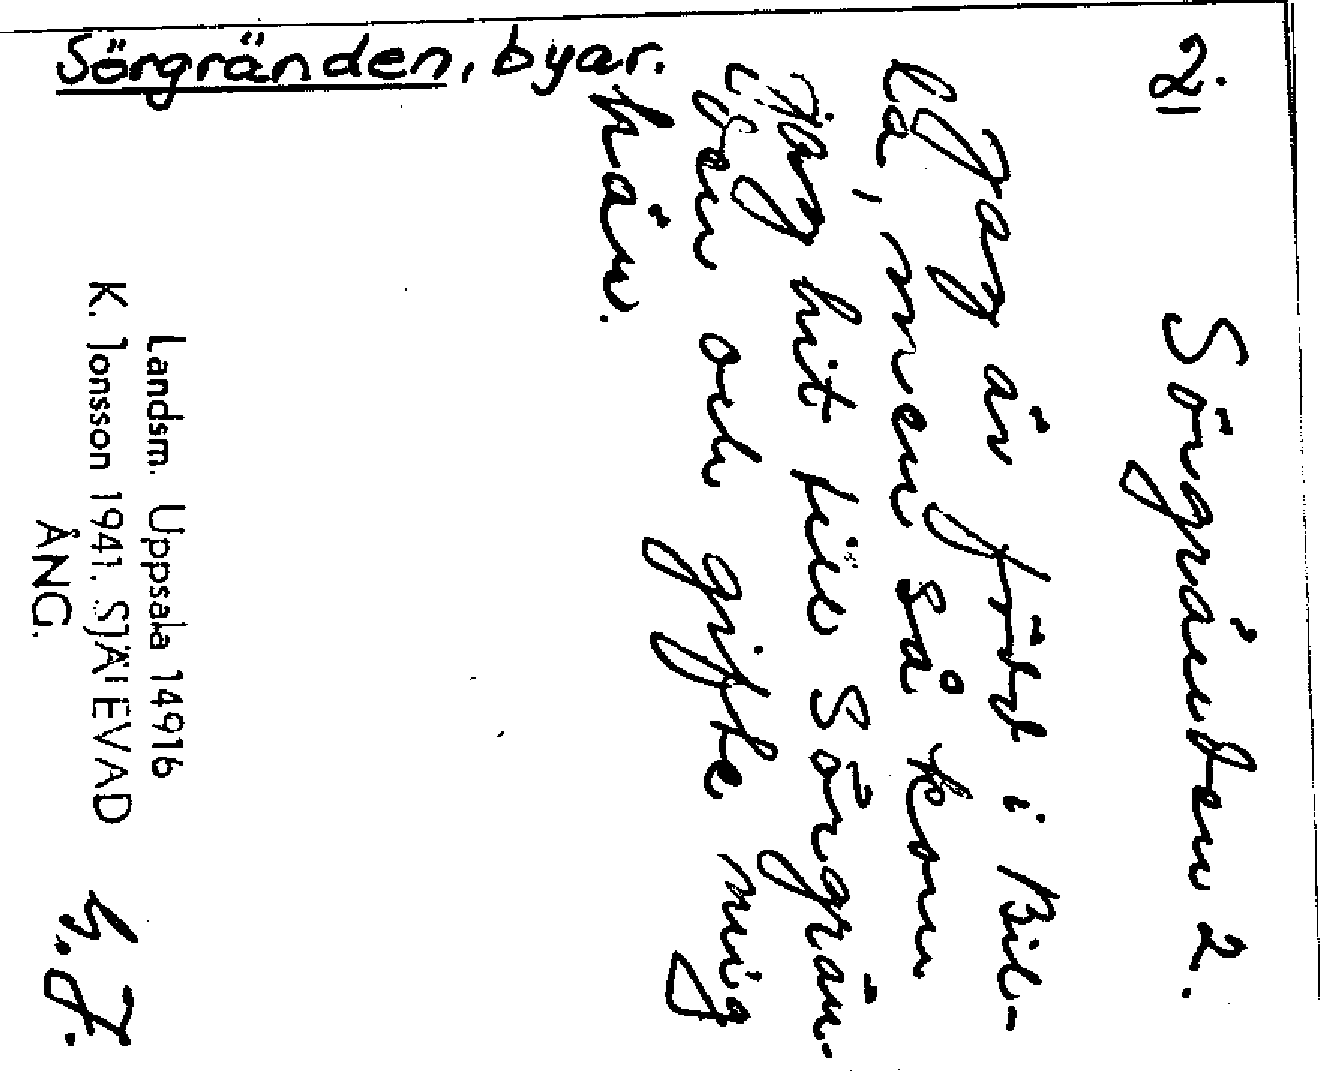 Sörgränden, byar.
2.
Sörgränden 2.
Jag är född i Bil-
la, men så kom
jag hit till Sörgrän-
och gifte mig
här.
Landsm. Uppsala 14916
K. Jonsson 1941. SJÄLEVAD
ÅNG.